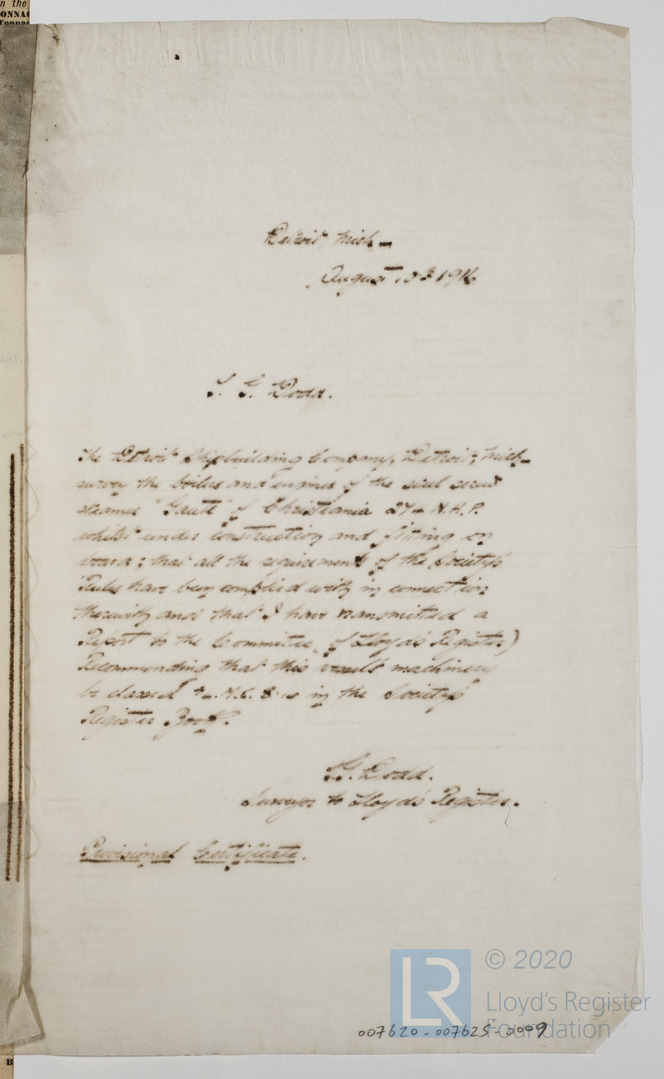 n the
ONNAG
Tonnag
Detroit Mich -
August 10th 1916
G. Dodd.
The Detroit Shipbuilding Company, Detroit, Mich -
survey the boilers and engines of the steel screw
steamer "Gaute" of Christiania 274 N.H.P.
whilst under construction and fitting on
board; that all the requirements of the Society's
Rules have been complied with in connection
therewith and that I have transmitted a
Report to the Committee of Lloyd's Register)
Recommending that this vessel's machinery
be classed + L.M.C. 8.16 in the Society's
Register Book.
G. Dodd.
Surveyor to Lloyd's Register.
Provisional Certificate.
© 2020
LR
Lloyd's Register
Foundation
007620-007625-0009
B